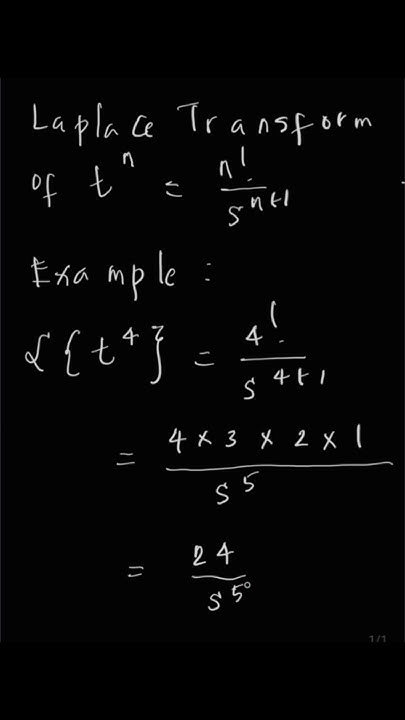 Laplace Transform
of t^n = n!/s^{n+1}
Example:
ℒ{t^4} = 4!/s^{4+1}
= 4 × 3 × 2 × 1/s^5
= 24/s^5
1/1